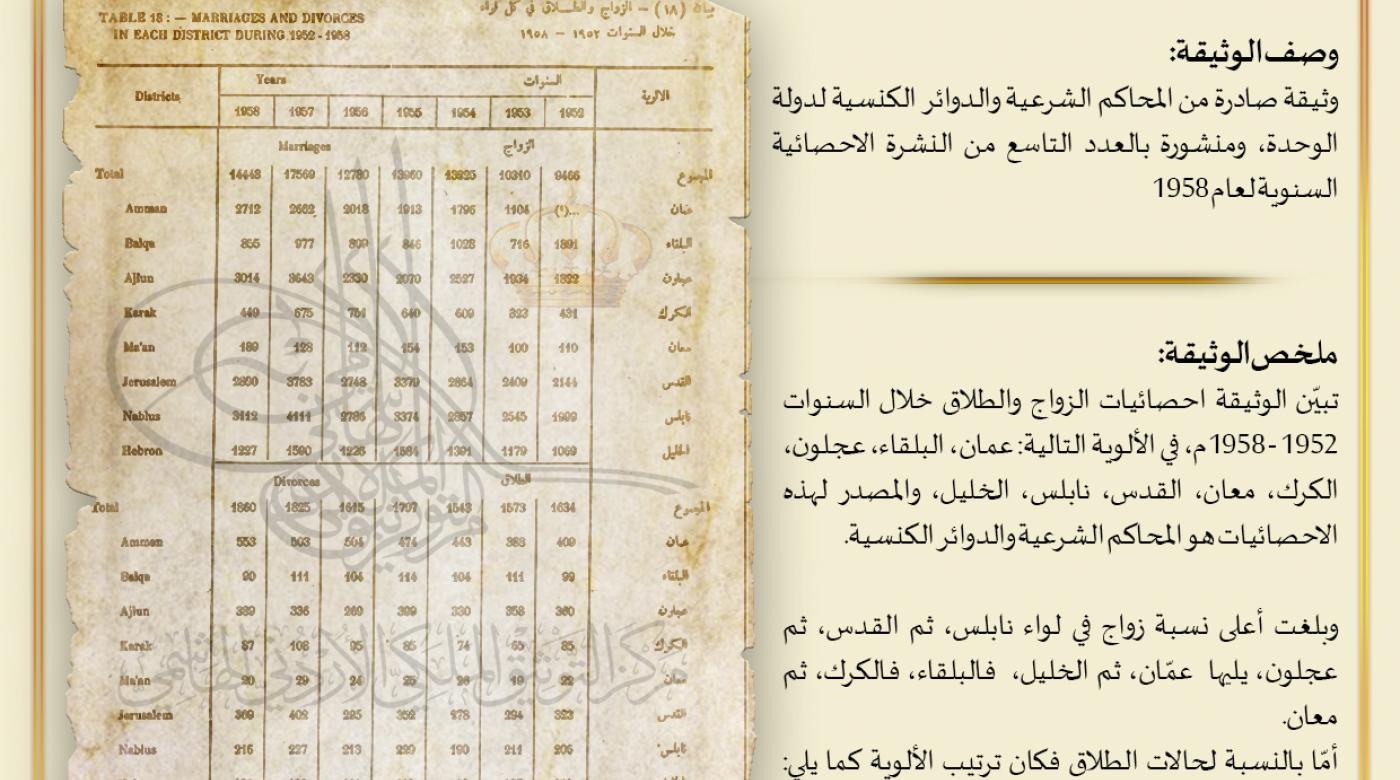 TABLE 18 : — MARRIAGES AND DIVORCES
IN EACH DISTRICT DURING 1952 - 1958
بيان (١٨) – الزواج والطلاق في كل لواء
خلال السنوات ١٩٥٢ – ١٩٥٨
Districts Years السنوات الالوية
1958 1957 1956 1955 1954 1953 1952
Marriages الزواج
Total 14448 17569 12780 10310 9466 المجموع
Amman 2712 2662 2018 1913 1796 1104 (١)... عمان
Balqa 855 977 809 846 1028 716 1891 البلقاء
Ajlun 3014 3643 2330 2070 2527 1934 1822 عجلون
Karak 449 675 751 640 609 323 431 الكرك
Ma'an 189 128 112 154 153 100 110 معان
Jerusalem 2890 3783 2748 3379 2864 2409 2144 القدس
Nablus 3112 4111 2786 3374 2857 2545 1999 نابلس
Hebron 1227 1590 1226 1584 1391 1179 1069 الخليل
Divorces الطلاق
Total 1860 1825 1615 1707 1543 1573 1634 المجموع
Amman 553 503 504 474 443 388 409 عمان
Balqa 90 111 104 114 104 111 99 البلقاء
Ajlun 389 336 260 309 330 358 360 عجلون
Karak 87 108 95 85 74 65 85 الكرك
Ma'an 20 29 24 25 26 19 22 معان
Jerusalem 369 402 295 352 278 294 323 القدس
Nablus 216 227 213 229 190 211 206 نابلس
مركز التوثيق الملكي الأردني الهاشمي
وصف الوثيقة:
وثيقة صادرة من المحاكم الشرعية والدوائر الكنسية لدولة
الوحدة، ومنشورة بالعدد التاسع من النشرة الاحصائية
السنوية لعام 1958
ملخص الوثيقة:
تبيّن الوثيقة احصائيات الزواج والطلاق خلال السنوات
1952 - 1958 م، في الألوية التالية: عمان، البلقاء، عجلون،
الكرك، معان، القدس، نابلس، الخليل، والمصدر لهذه
الاحصائيات هو المحاكم الشرعية والدوائر الكنسية.
وبلغت أعلى نسبة زواج في لواء نابلس، ثم القدس، ثم
عجلون، يليها عمّان، ثم الخليل، فالبلقاء، فالكرك، ثم
معان.
أمّا بالنسبة لحالات الطلاق فكان ترتيب الألوية كما يلي: